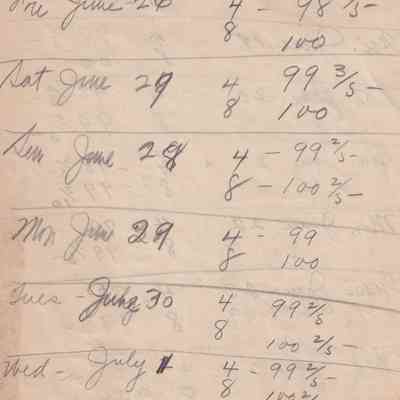 Fri June 26 4 - 98 /5-
8 100
Sat June 29 4 99 3/5 -
8 100
Sun June 28 4 - 99 2/5-
8 - 100 2/5-
Mon June 29 4 - 99
8 100
Tues - June 30 4 99 2/5
8 100 2/5-
Wed - July 1 4 - 99 2/5-
8 100 2/